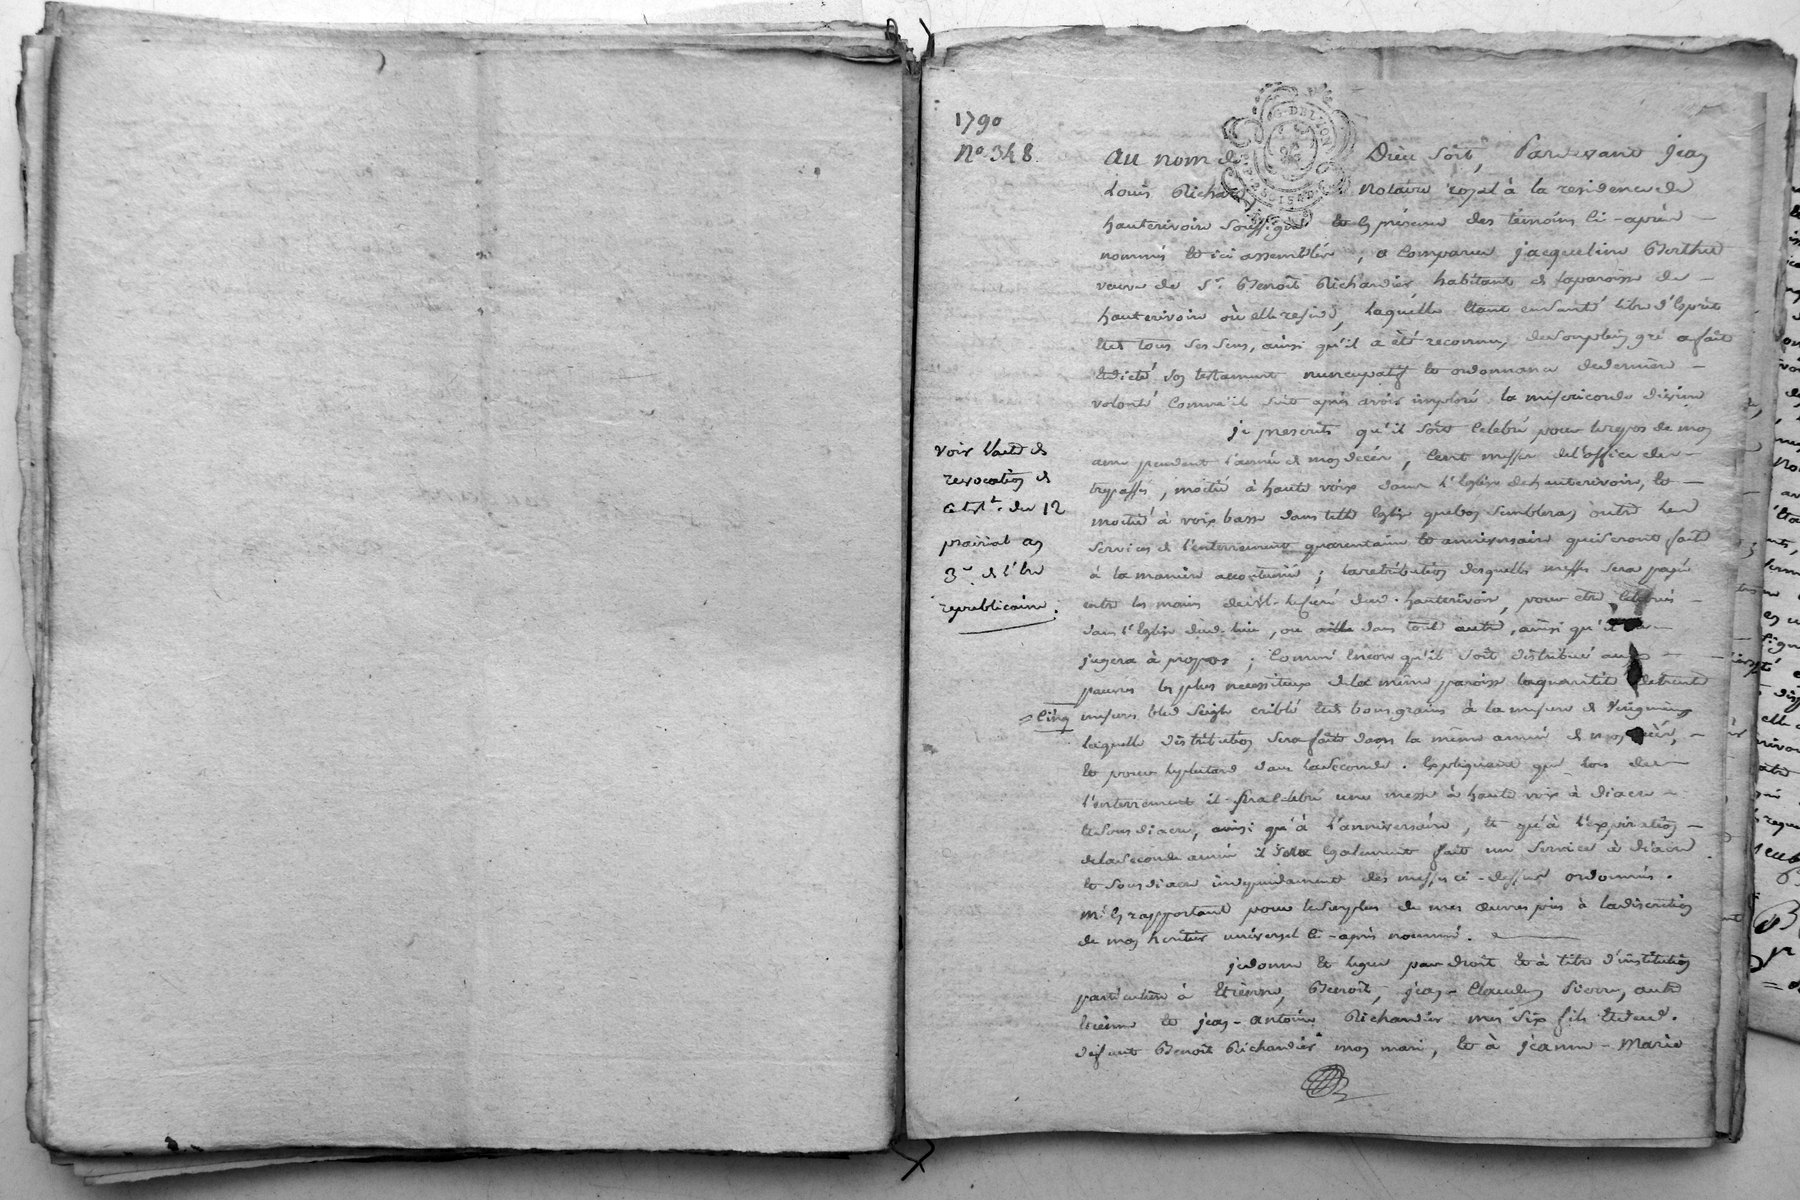 1790
N.o 348
G. DE LYON
Au nom de Dieu soit, Pardevant Jean
Louis Richard notaire royal à la residence de
hauterivoire soussigné et en présence des témoins ci-après
nommés et ici assemblés, a comparu jacqueline Berthet
veuve de S.r Benoit Richardier habitant en la paroisse de
hauterivoire où elle reside, laquelle étant en santé libre d'esprit
et de tous ses sens, ainsi qu'il a été reconnu, de son plein gré a fait
et dicté son testament nuncupatif et ordonnance de derniere
volonté comme il suit après avoir imploré la misericorde divine
je prescrits qu'il soit celebré pour le repos de mon
ame pendant l'année de mon decès, cent messes de l'office des
trepassés, moitié à haute voix dans l'Eglise de hauterivoire, et
moitié à voix basse dans telle Eglise que bon semblera, outre les
services de l'enterrement quarantaine et anniversaire qui seront faits
à la maniere accoutumée ; la retribution desquelles messes sera payée
entre les mains de curé dud. hauterivoire, pour etre celebrées
dans l'Eglise dud. lieu, ou dans toute autre, ainsi qu'il
jugera à propos ; comme encore qu'il soit distribué aux
pauvres les plus necessiteux de la même paroisse la quantité de trente
= cinq
mesures bled seigle criblé et de bons grains à la mesure de
laquelle distribution sera faite dans la même année de mon decès,
et pour le plutard dans la seconde. Expliquant que lors de
l'enterrement il sera celebré une messe à haute voix à diacre
et sous diacre, ainsi qu'à l'anniversaire, et qu'à l'expiration
de la seconde année il sera egalement fait un service à diacre
et sous diacre independament des messes ci-dessus ordonnées.
M'en rapportant pour le surplus de mes œuvres pies à la discretion
de mon heritier universel ci-après nommé.
je donne et legue par droit et à titre d'institution
particuliere à Etienne, Benoit, jean-Claude, Pierre, autre
Etienne et jean-antoine Richardier mes six fils et dud.
defunt Benoit Richardier mon mari, et à jeanne-Marie
voir l'acte de
revocation de
ce test.t du 12
prairial an
3.e de l'Ere
republicaine.